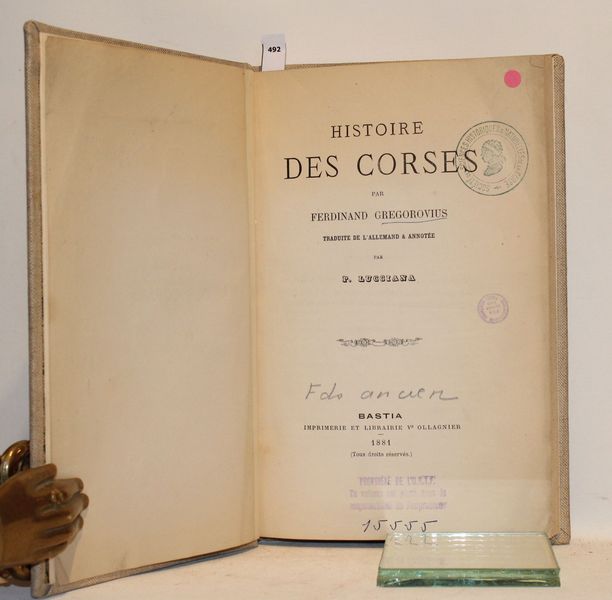 492
HISTOIRE
DES CORSES
PAR
FERDINAND GREGOROVIUS
TRADUITE DE L'ALLEMAND & ANNOTÉE
PAR
P. LUCCIANA
Fds ancien
BASTIA
IMPRIMERIE ET LIBRAIRIE Ve OLLAGNIER
1881
(Tous droits réservés.)
PROPRIÉTÉ DE
15555